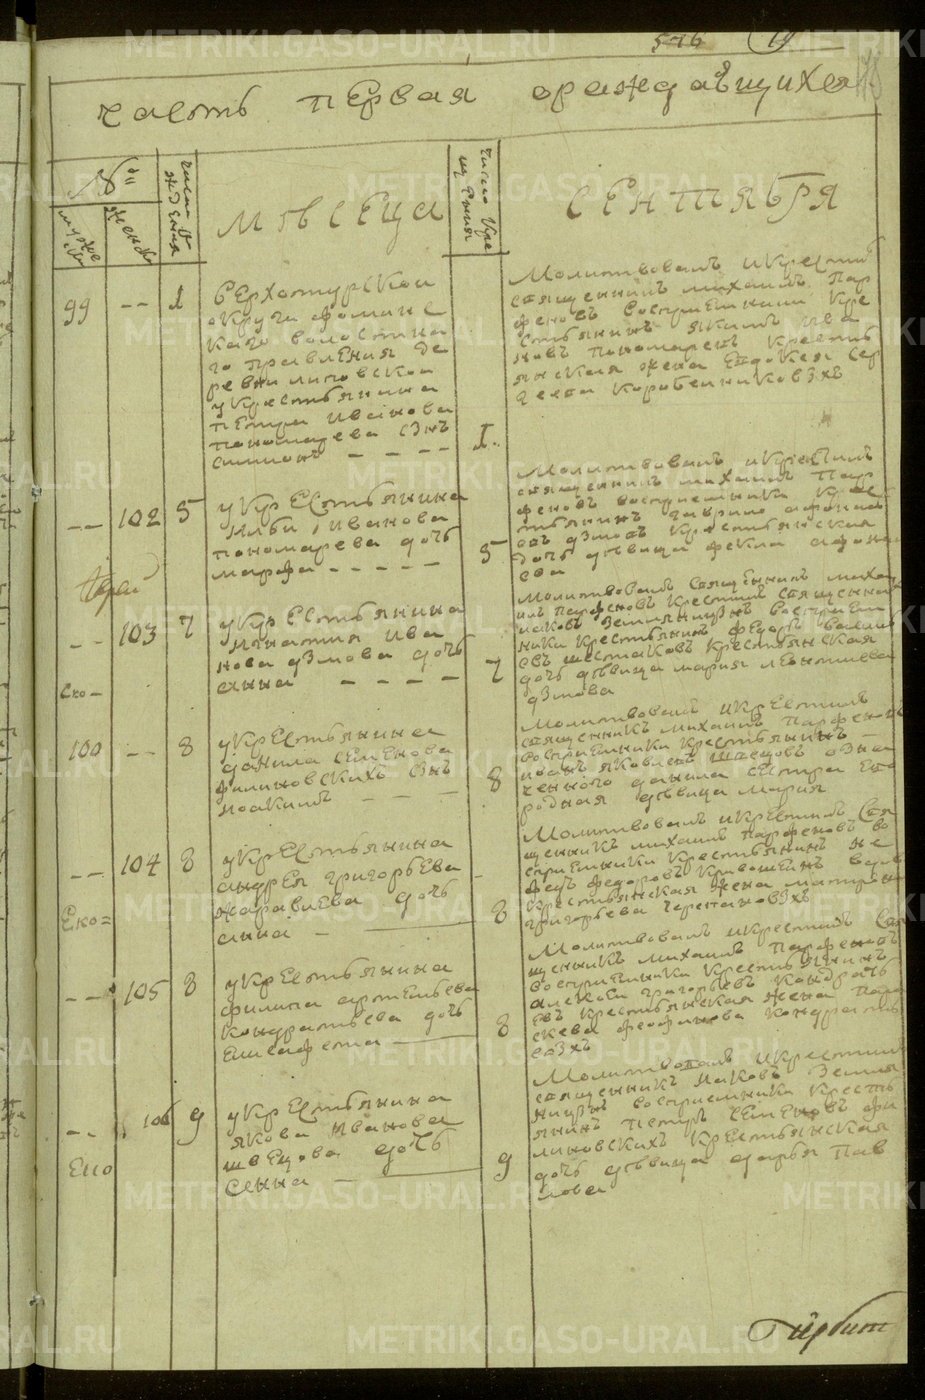 546
часть первая ораждавщихся
№
число рождения
мѣсеца
число крещения
сентября
мужеск
женск
99 -- 1
верхотурской
округи фоминс
каго волостна
го правления де
ревни липовской
у крестьянина
петра иванова
пономарева сынъ
симионъ - - - - 1
молитвовалъ и крестил
священникъ михаилъ пар
феновъ восприемники кре
стьянинъ якимъ ива
новъ пономаревъ кресть
янская жена евдокея сер
геева коробейниковыхъ
-- 102 5
у крестьянина
ильи иванова
пономарева дочь
марфа - - - - - 5
молитвовалъ и крестилъ
священникъ михаилъ пар
феновъ восприемники кре
стьянинъ гаврило афонас
евъ крестьянская
дочь дѣвица фекла афона
сева
- 103 7
у крестьянина
игнатия ива
нова дочь
анна - - - - 7
молитвовалъ священникъ миха
илъ парфеновъ крестилъ священник
иаковъ земляницынъ восприем
ники крестьянинъ федоръ васил
евъ шестаковъ крестьянская
дочь дѣвица мария леонтиева
100 -- 8
у крестьянина
данила семенова
филиновскихъ сынъ
иоакимъ - - - 8
молитвовалъ и крестилъ
священникъ михаилъ парфеновъ
восприемники крестьянинъ
иванъ яковлевъ швецовъ озна
ченного данила сестра
родная дѣвица мария
-- 104 8
у крестьянина
андрея григорьева
журавлева дочь
анна - 8
молитвовалъ и крестилъ свя
щенникъ михаилъ парфеновъ во
сприемники крестьянинъ
федоръ кривошеинъ
крестьянская жена матрона
григорьева черепановыхъ
-- 105 8
у крестьянина
филипа артемьева
кондратьева дочь
елисафета 8
молитвовалъ и крестилъ свя
щенникъ михаилъ парфеновъ
восприемники крестьянинъ
алексѣй григорьевъ кондрать
евъ крестьянская жена пара
скева феофанова кондратье
выхъ
-- 106 9
у крестьянина
якова иванова
швецова дочь
сенна - 9
молитвовалъ и крестилъ
священникъ иаковъ земля
ницынъ восприемники кресть
янинъ петръ семеновъ фи
линовскихъ крестьянская
дочь дѣвица дарья пав
лова
Ирбит